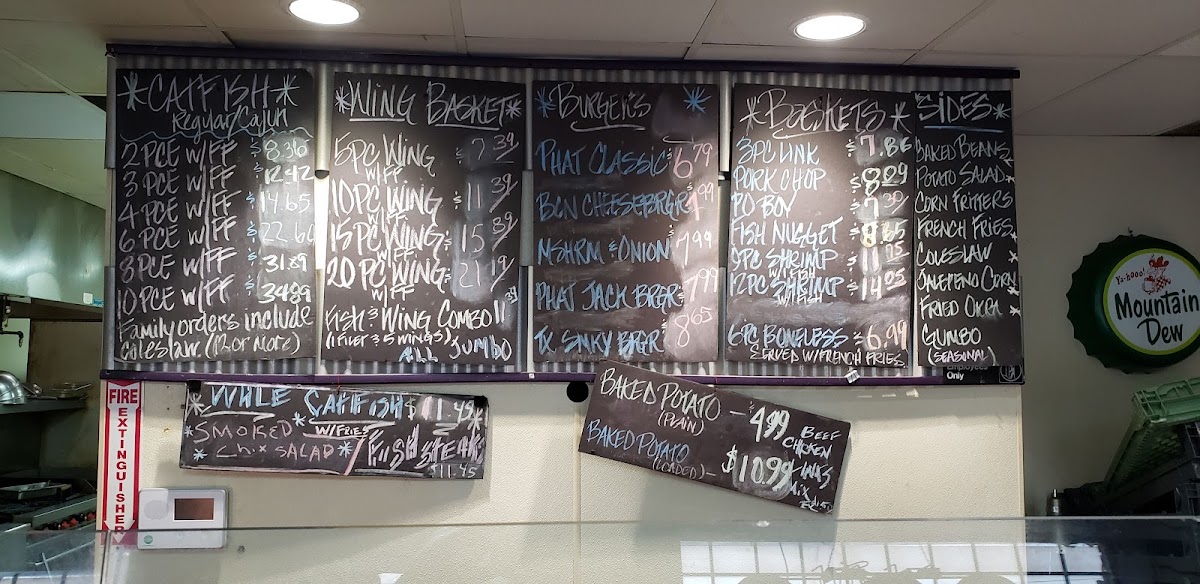 CATFISH
Regular/Cajun
2 PCE W/FF $8.36
3 PCE W/FF $12.42
4 PCE W/FF $14.65
6 PCE W/FF $22.60
8 PCE W/FF $31.89
10 PCE W/FF $34.89
Family orders include
coleslaw. (12 or more)
WING BASKET
5 PC WING $7.39
W/FF
10 PC WING $11.39
W/FF
15 PC WING $15.39
W/FF
20 PC WING $21.19
W/FF
FISH & WING COMBO 11
ALL JUMBO
BURGERS
PHAT CLASSIC $6.79
BCN CHEESEBRGR
MSHRM & ONION 7.99
PHAT JACK BRGR 7.99
TX SNKY BRGR $8.65
BASKETS
3 PC LINK $7.86
PORK CHOP $8.09
PO BOY $7.39
FISH NUGGET $8.35
9 PC SHRIMP $11.05
W/FISH
12 PC SHRIMP $14.05
W/FISH
6 PC BONELESS $6.99
SERVED W/FRENCH FRIES
SIDES
BAKED BEANS
POTATO SALAD
CORN FRITTERS
FRENCH FRIES
COLESLAW
FRIED OKRA
GUMBO
(SEASONAL)
Employees
Only
Ya-hooo!
Mountain
Dew
FIRE
EXTINGUISHER
WHLE CATFISH $11.45
W/FRIES
SMOKED
CHIX SALAD
FISH STEAK
$11.45
BAKED POTATO — 4.99
(PLAIN)
BAKED POTATO
(LOADED) — $10.99
BEEF
CHICKEN
LINKS
MIX